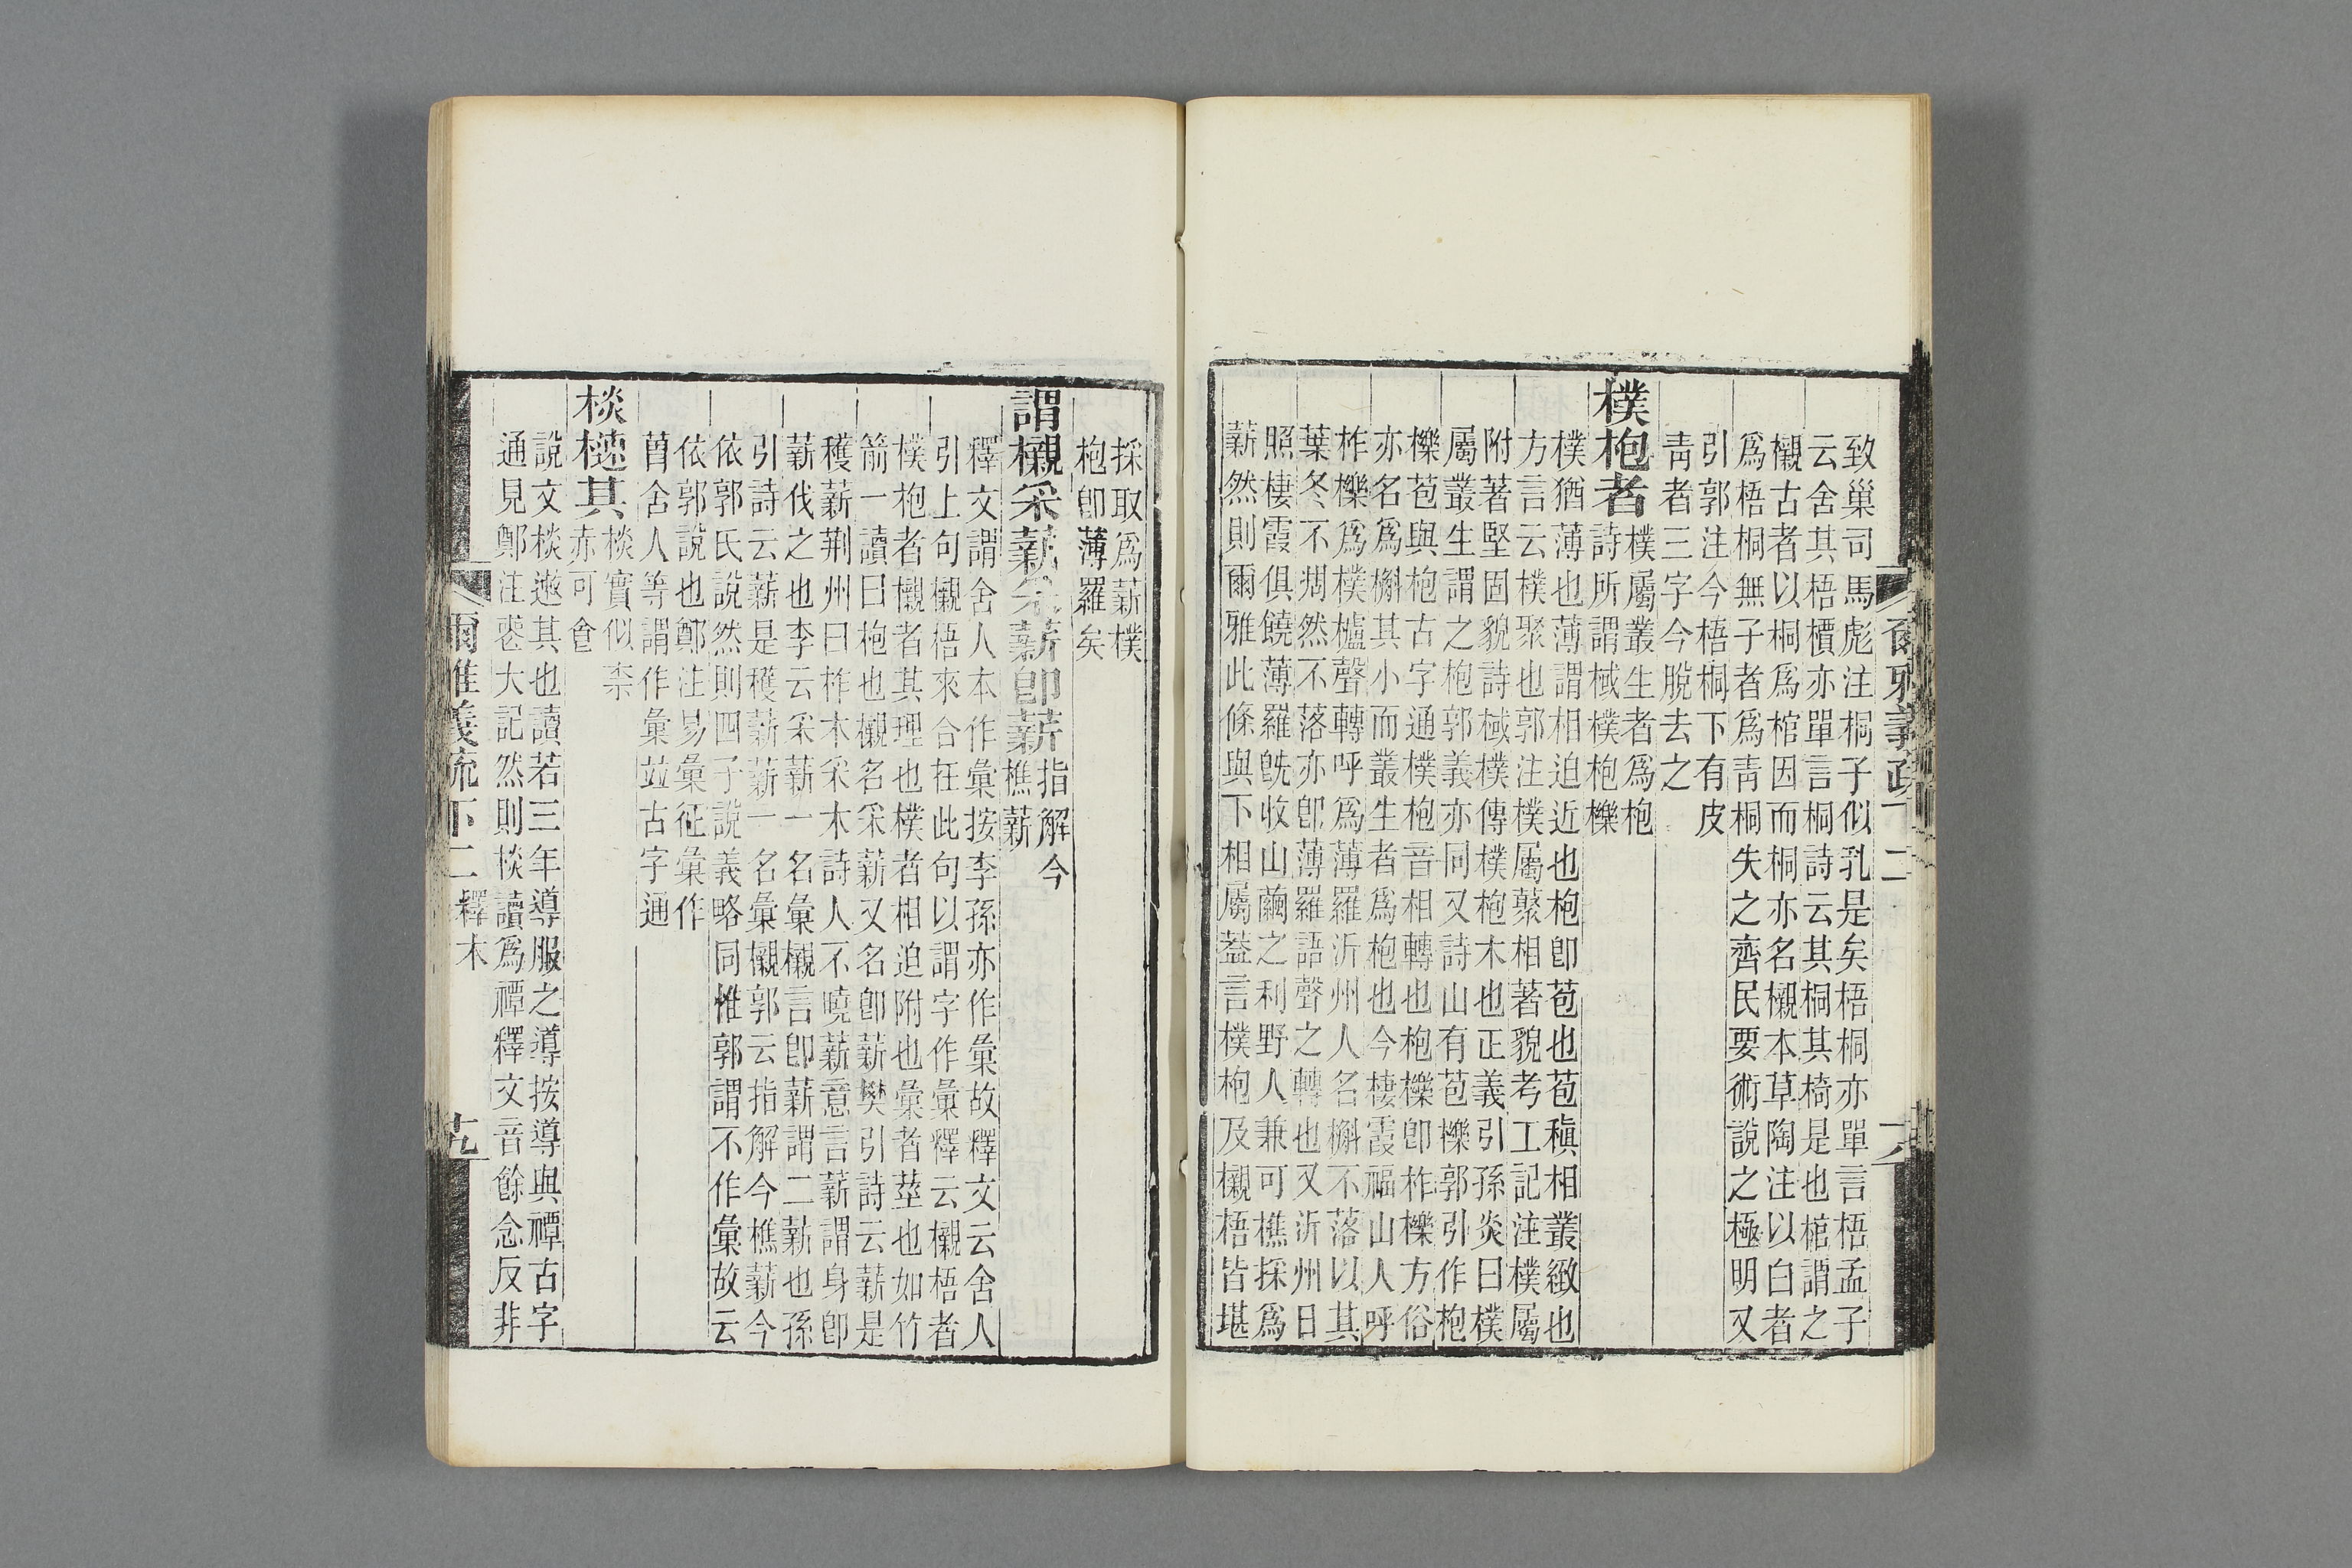 爾雅義疏下二
致巢司馬彪注桐子似乳是矣梧桐亦單言梧孟子
云舍其梧檟亦單言桐詩云其桐其椅是也棺謂之
櫬古者以桐爲棺因而桐亦名櫬本草陶注以白者
爲梧桐無子者爲青桐失之齊民要術說之極明又
引郭注今梧桐下有皮
青者三字今脫去之
樸枹者
樸屬叢生者爲枹
詩所謂棫樸枹櫟
樸猶薄也薄謂相迫近也枹卽苞也苞稹相叢緻也
方言云樸聚也郭注樸屬藂相著貌考工記注樸屬
附著堅固貌詩棫樸傳樸枹木也正義引孫炎曰樸
屬叢生謂之枹郭義亦同又詩山有苞櫟郭引作枹
櫟苞與枹古字通樸枹音相轉也枹櫟卽柞櫟方俗
亦名爲槲其小而叢生者爲枹也今棲霞福山人呼
柞櫟爲樸櫨聲轉呼爲薄羅沂州人名槲不落以其
葉冬不凋然不落亦卽薄羅語聲之轉也又沂州日
照棲霞俱饒薄羅旣收山繭之利野人兼可樵採爲
薪然則爾雅此條與下相屬葢言樸枹及櫬梧皆堪
採取爲薪樸
枹卽薄羅矣
謂櫬采薪采薪卽薪
指解今
樵薪
釋文謂舍人本作彙按李孫亦作彙故釋文云舍人
引上句櫬梧來合在此句以謂字作彙釋云櫬梧者
樸枹者櫬者其理也樸者相迫附也彙者莖也如竹
箭一讀曰枹也櫬名采薪又名卽薪樊引詩云薪是
穫薪荆州曰柞木采木詩人不曉薪意言薪謂身卽
薪伐之也李云采薪一名彙櫬言卽薪謂二薪也孫
引詩云薪是穫薪薪一名彙櫬郭云指解今樵薪今
依郭氏說然則四子說義略同惟郭謂不作彙故云
依郭說也鄭注易彙征彙作
𦳢舍人等謂作彙竝古字通
棪樕其
棪實似柰
赤可食
說文棪遬其也讀若三年導服之導按導與禫古字
通見鄭注喪大記然則棪讀爲禫釋文音餘念反非
爾雅義疏下二 釋木
十九